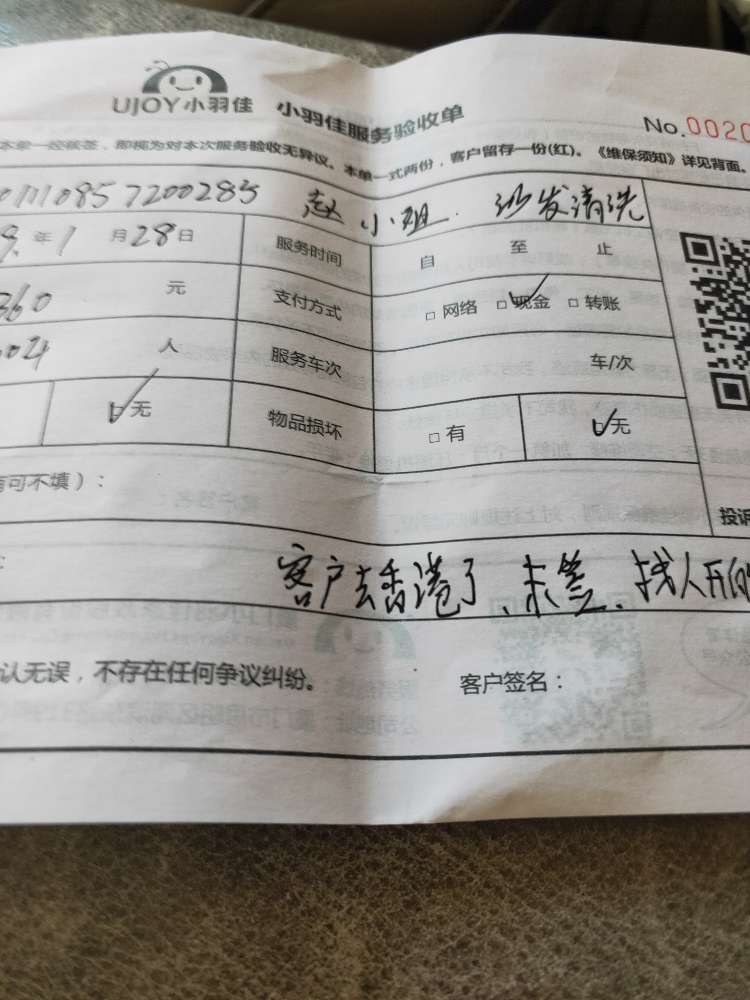 UJOY小羽佳 小羽佳服务验收单
No.0020
本单一经核签,即视为对本次服务验收无异议。本单一式两份,客户留存一份(红)。《维保须知》详见背面。
01110857200285 赵小姐. 沙发清洗
9. 年 1 月 28 日 服务时间 自 至 止
360 元 支付方式 □网络 □现金 □转账
人 服务车次 车/次
无 物品损坏 □有 □无
有可不填):
投诉
客户去香港了、未签、找人开的
认无误,不存在任何争议纠纷。 客户签名: